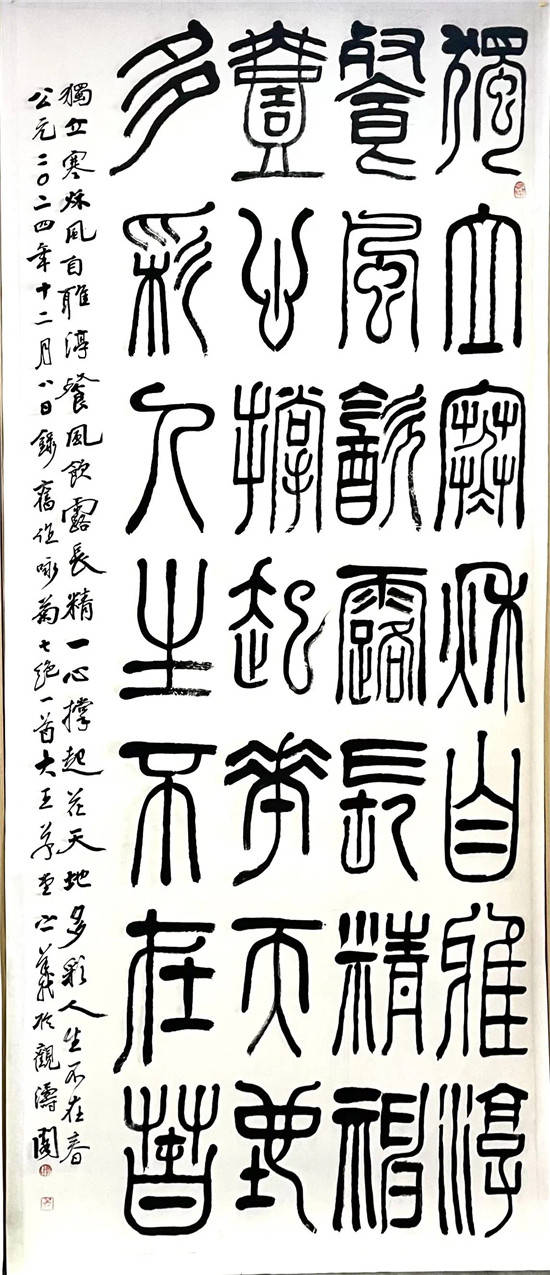 獨立寒秋自雅淳
餐風飲露長精神
壹心撐起花天地
多彩人生不在春
獨立寒秋風自雅淳餐風飲露長精一心撐起花天地多彩人生不在春
公元二〇二四年十二月八日錄舊作咏菊七絶一首大王草堂義於觀濤閣